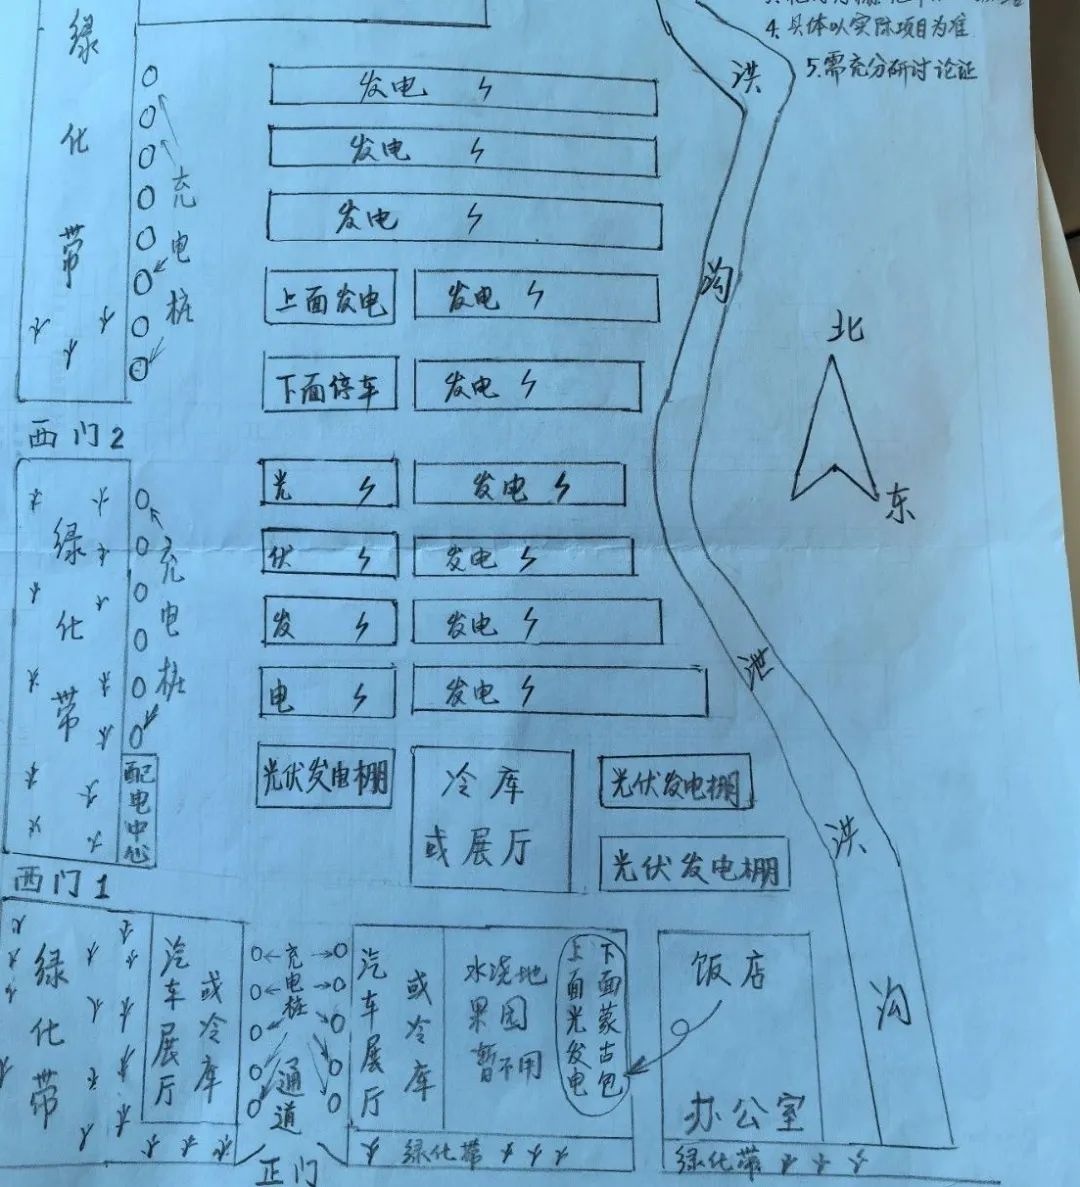 4.具体以实际项目为准
5.需充分研讨论证
绿化带
充电桩
发电
发电
发电
上面发电
发电
下面停车
发电
洪沟
北
东
西门2
绿化带
充电桩
光
发电
伏
发电
发
发电
电
发电
配电中心
光伏发电棚
冷库
或展厅
光伏发电棚
光伏发电棚
泄洪沟
西门1
绿化带
汽车展厅
或冷库
充电桩
通道
正门
汽车展厅
或冷库
水浇地
果园
暂不用
上面光发电
下面蒙古包
绿化带
饭店
办公室
绿化带